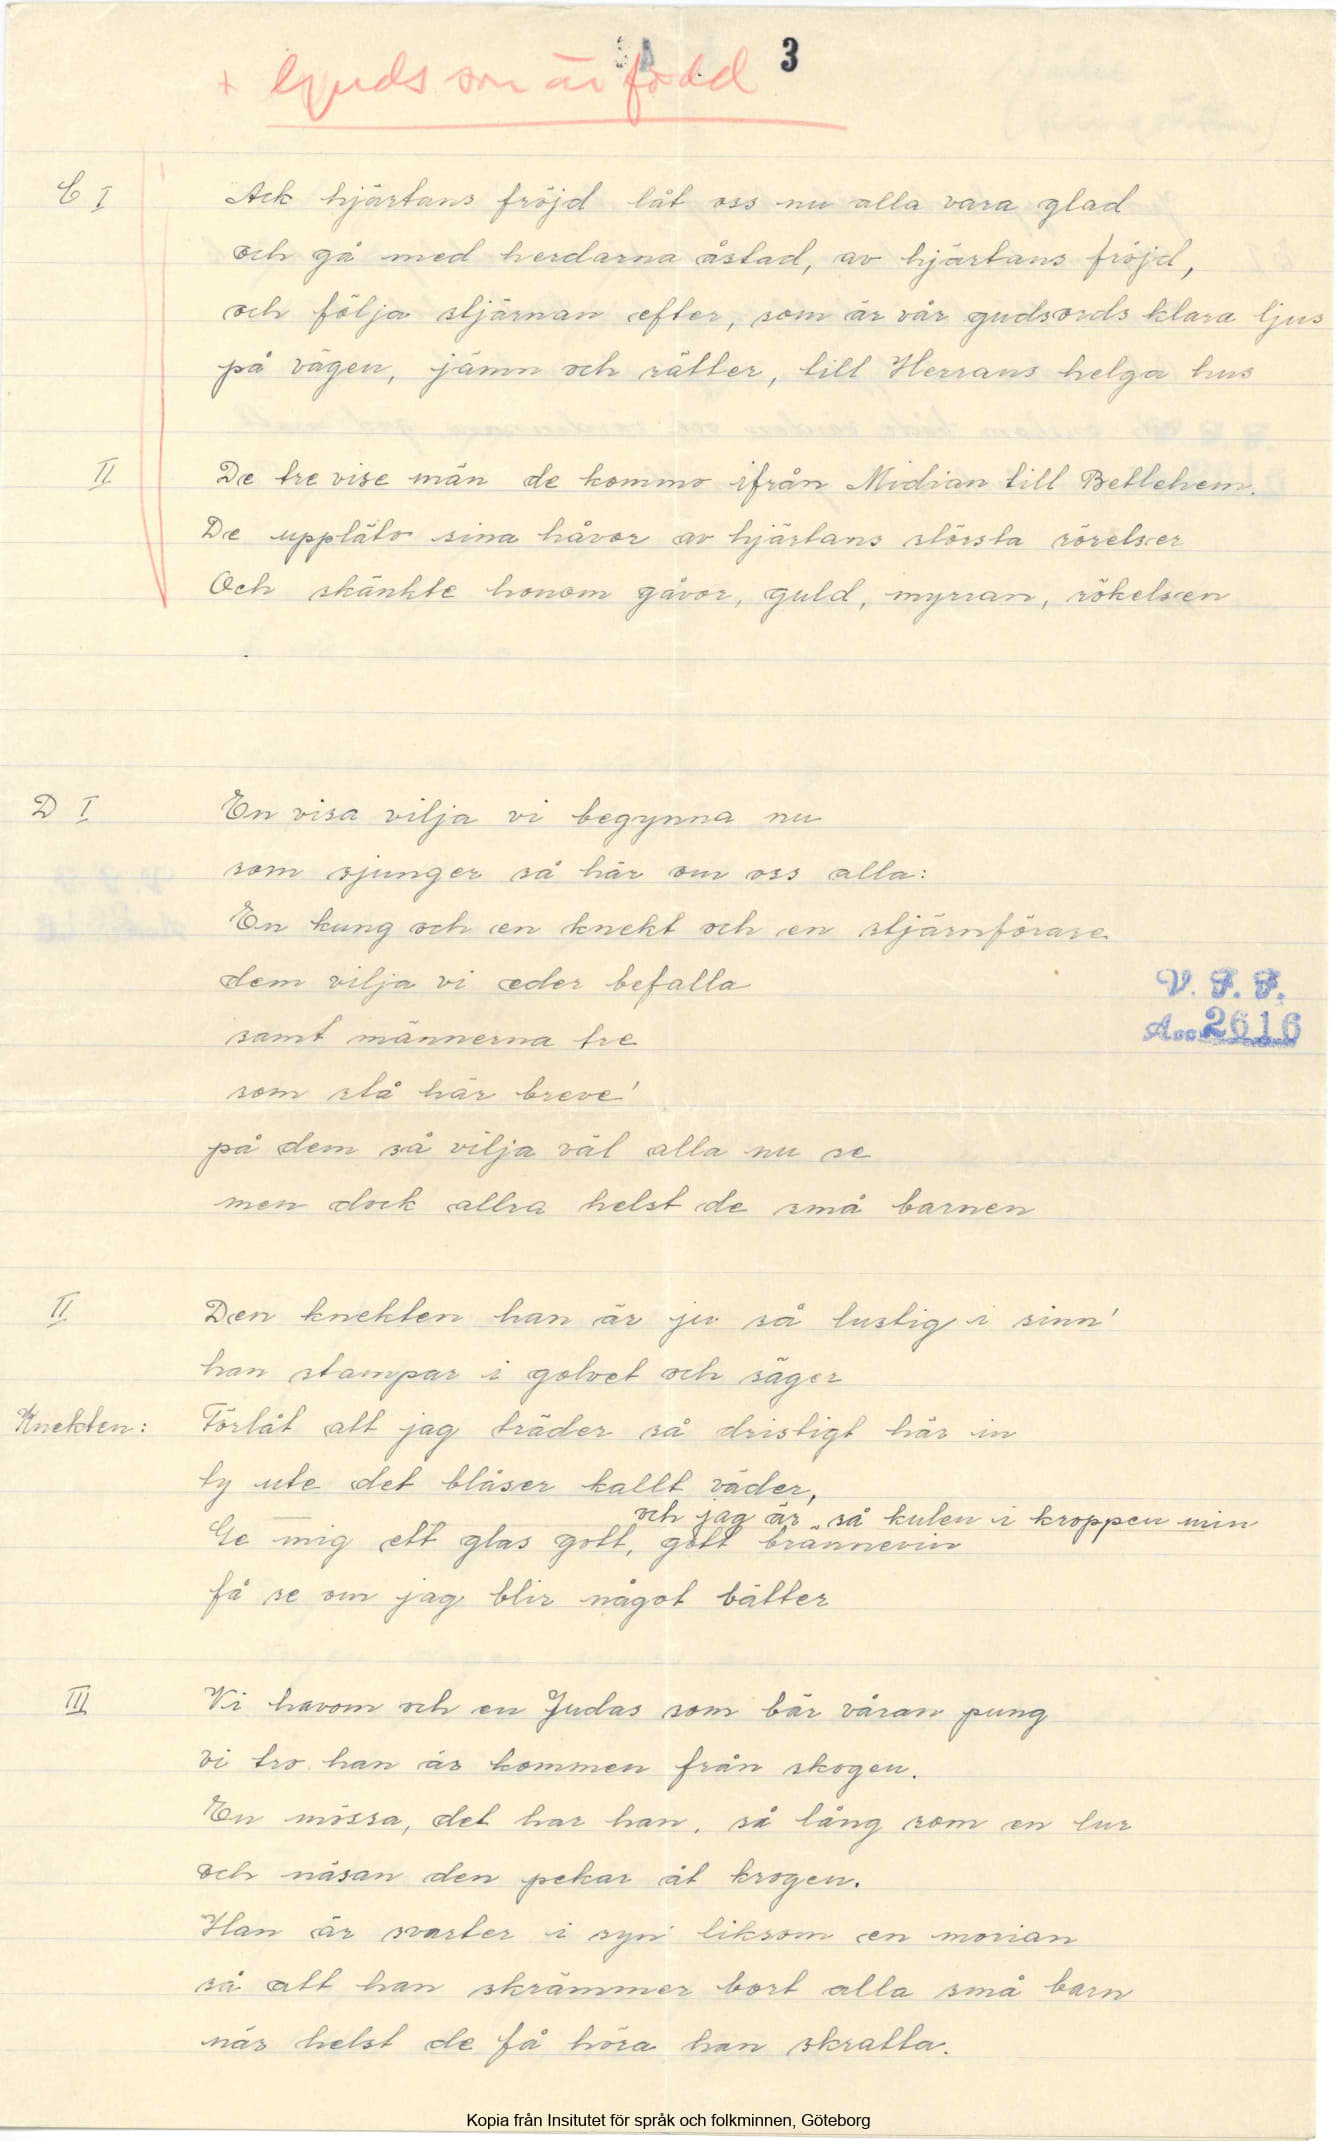 3
+ Guds son är född
C I Ack hjärtans fröjd låt oss nu alla vara glad
och gå med herdarna åstad, av hjärtans fröjd,
och följa stjärnan efter, som är vår gudsords klara ljus
på vägen, jämn och rätter, till Herrans helga hus
II De tre vise män de kommo ifrån Midian till Betlehem.
De uppläto sina håvor av hjärtans största rörelser
Och skänkte honom gåvor, guld, myrran, rökelsen
D I En visa vilja vi begynna nu
som sjunger så här om oss alla:
En kung och en knekt och en stjärnförare
dem vilja vi eder befalla
V. F. F.
samt männerna tre
Acc. 2616
som stå här breve'
på dem så vilja väl alla nu se
men dock allra helst de små barnen
II Den knekten han är ju så lustig i sinn'
han stampar i golvet och säger
Knekten: Förlåt att jag träder så dristigt här in
ty ute det blåser kallt väder,
och jag är så kulen i kroppen min
Ge mig ett glas gott, gott brännevin
få se om jag blir något bätter
III Vi havom och en Judas som bär våran pung
vi tro han är kommen från skogen.
En mössa, det har han, så lång som en lur
och näsan den pekar åt krogen.
Han är svarter i syn' liksom en morian
så att han skrämmer bort alla små barn
när helst de få höra han skratta.
Kopia från Insitutet för språk och folkminnen, Göteborg